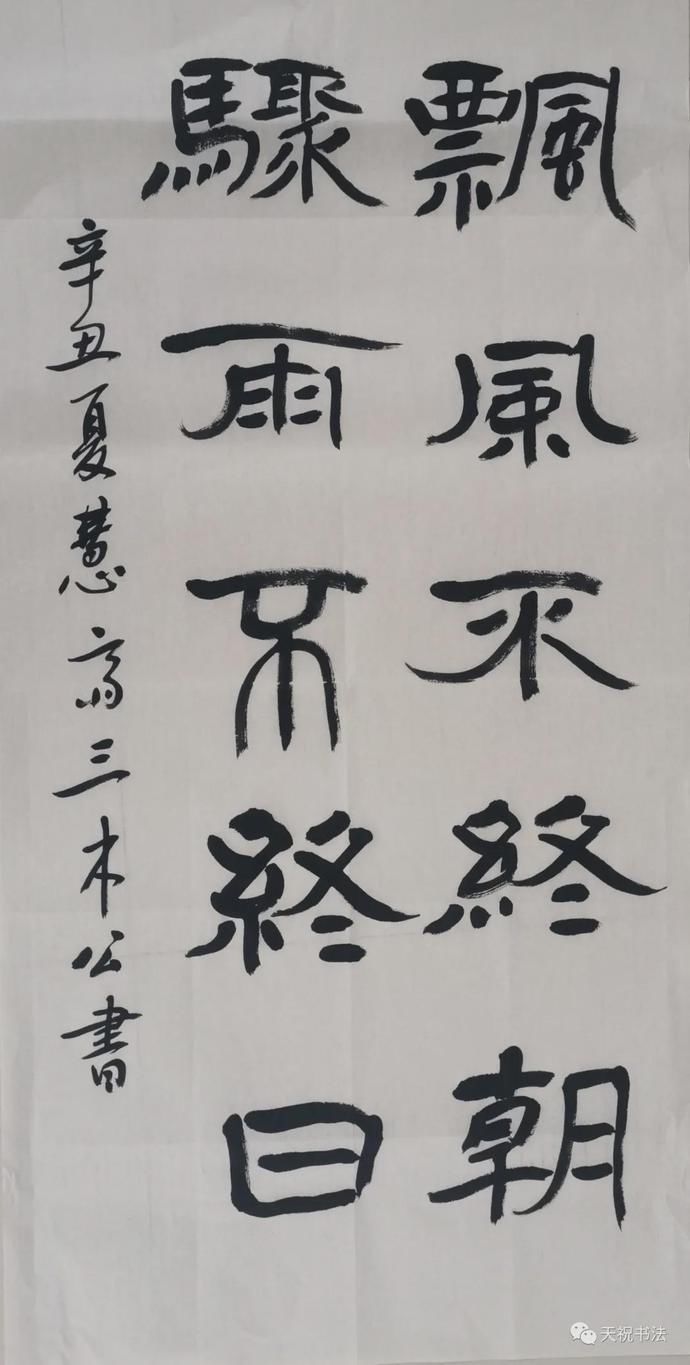 飄風不終朝
驟雨不終日
辛丑夏慧斋三木公書
天祝书法